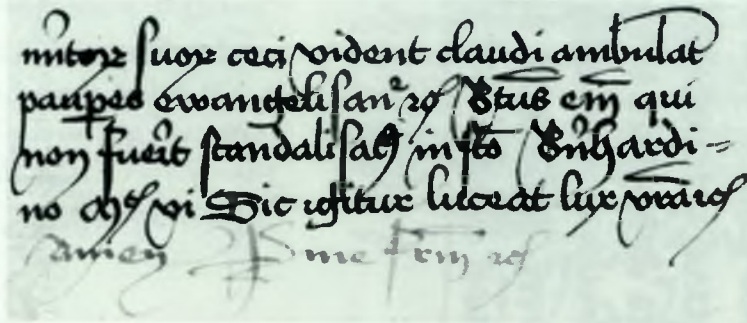 nūtoꝝ suoꝝ ceci vident claudi ambulāt
pauꝑes ewangelisant᷑ ⁊c Btus em̄ qui
non fuerit scandalisatꝰ in sc̄o Bn̄hardi-
no Mᵗ vi Sic igitur luceat lux vr̄a ⁊c
amen